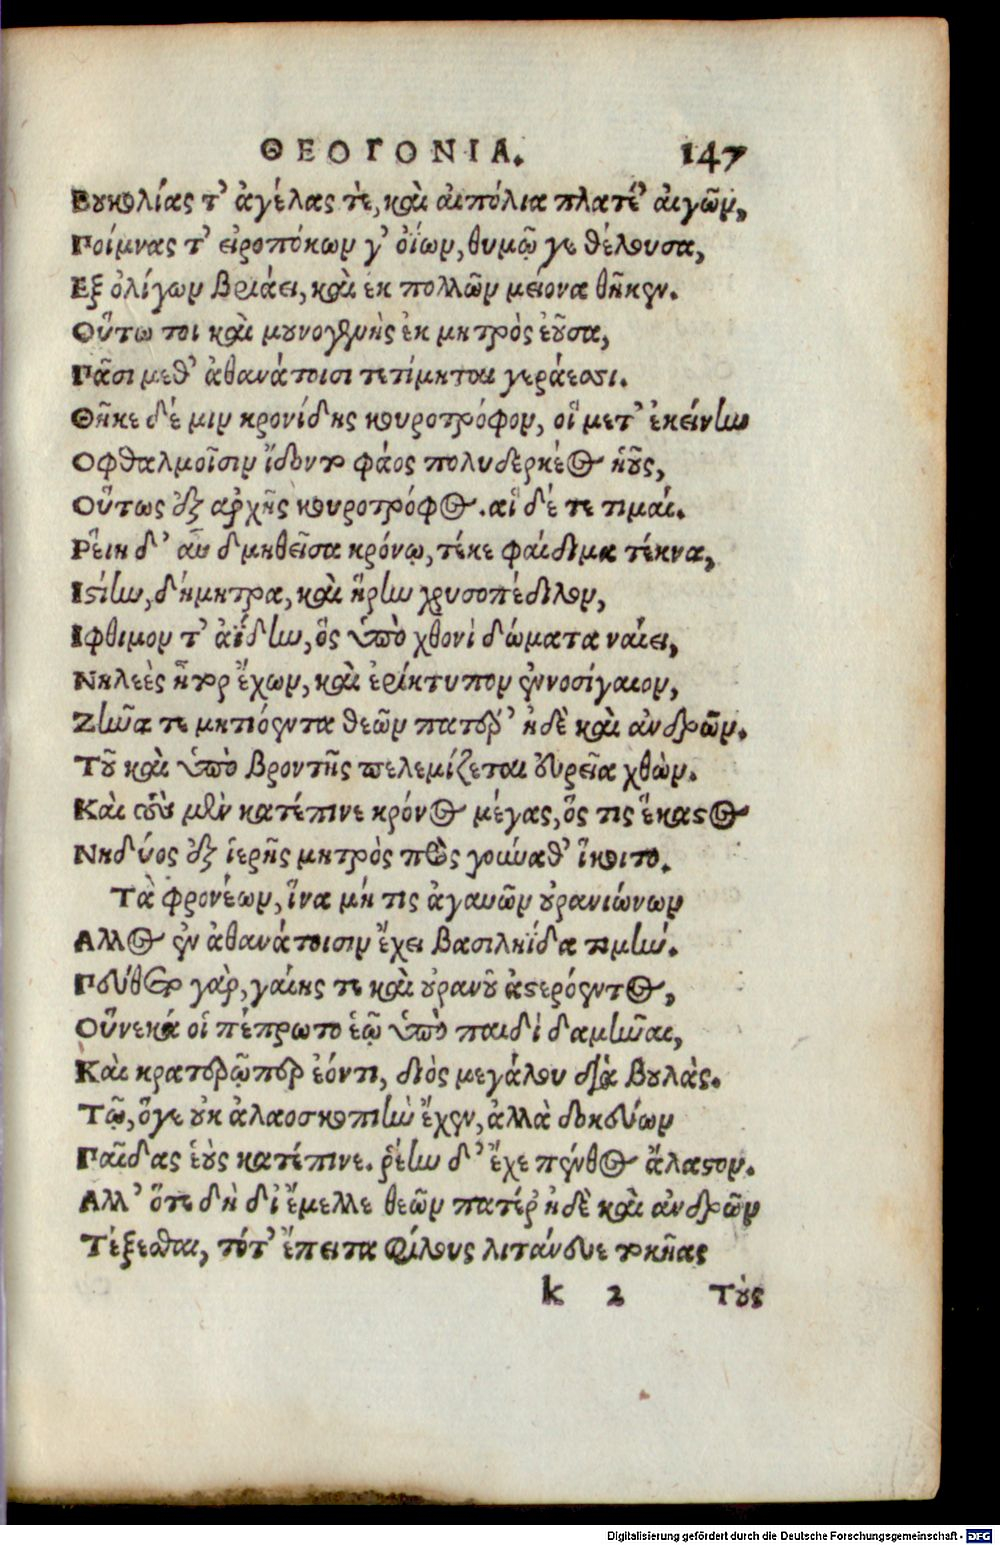 ΘΕΟΓΟΝΙΑ. 147
Βουκολίας τ' ἀγέλας τὲ, καὶ αἰπόλια πλατέ' αἰγῶν,
Ποίμνας τ' εἰροπόκων γ' ὀΐων, θυμῷ γε θέλουσα,
Εξ ὀλίγων βριάει, καὶ ἐκ πολλῶν μείονα θῆκεν.
Οὕτω τοι καὶ μουνογενὴς ἐκ μητρὸς ἐοῦσα,
Πᾶσι μεθ' ἀθανάτοισι τετίμηται γεράεσσι.
Θῆκε δέ μιν κρονίδης κουροτρόφον, οἳ μετ' ἐκείνην
Οφθαλμοῖσιν ἴδοντο φάος πολυδερκέος ἠοῦς,
Οὕτως ἐξ αρχῆς κουροτρόφος. αἳ δέ τε τιμαί.
Ρείη δ' αὖ δμηθεῖσα κρόνῳ, τέκε φαίδιμα τέκνα,
Ιστίην, δήμητρα, καὶ ἥρην χρυσοπέδιλον,
Ιφθιμον τ' ἀΐδην, ὃς ὑπὸ χθονὶ δώματα ναίει,
Νηλεὲς ἦτορ ἔχων, καὶ ἐρίκτυπον ἐννοσίγαιον,
Ζῆνά τε μητιόεντα θεῶν πατέρ' ἠδὲ καὶ ἀνδρῶν.
Τοῦ καὶ ὑπὸ βροντῆς πελεμίζεται εὐρεῖα χθὼν.
Καὶ τοὺς μὲν κατέπινε κρόνος μέγας, ὅς τις ἕκαστος
Νηδύος ἐξ ἱερῆς μητρὸς πρὸς γούναθ' ἵκοιτο.
Τὰ φρονέων, ἵνα μή τις ἀγαυῶν οὐρανιώνων
Αλλος ἐν ἀθανάτοισιν ἔχει βασιληΐδα τιμήν.
Πεύθετο γὰρ, γαίης τε καὶ οὐρανοῦ ἀστερόεντος,
Οὕνεκά οἱ πέπρωτο ἑῷ ὑπὸ παιδὶ δαμῆναι,
Καὶ κρατερῷπερ ἐόντι, διὸς μεγάλου διὰ βουλὰς.
Τῷ, ὅγε οὐκ ἀλαοσκοπιὴν ἔχεν, ἀλλὰ δοκεύων
Παῖδας ἑοὺς κατέπινε. ῥέην δ' ἔχε πένθος ἄλαστον.
Αλλ' ὅτε δὴ δί' ἔμελλε θεῶν πατέρ' ἠδὲ καὶ ἀνδρῶν
Τέξεσθαι, τότ' ἔπειτα φίλους λιτάνευε τοκῆας
k 2 Τοὺς
Digitalisierung gefördert durch die Deutsche Forschungsgemeinschaft - DFG